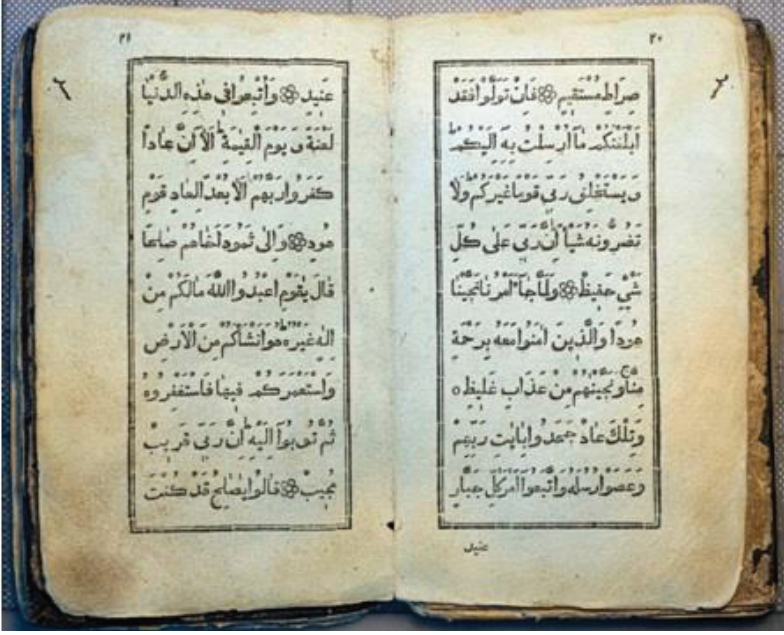 ٢٠
صِرَاطٍ مُسْتَقِيمٍ ۞ فَاِنْ تَوَلَّوْا فَقَدْ
اَبْلَغْتُكُمْ مَٓا اُرْسِلْتُ بِهٖٓ اِلَيْكُمْ ۜ
وَيَسْتَخْلِفُ رَبّٖى قَوْمًا غَيْرَكُمْ ۚ وَلَا
تَضُرُّونَهُ شَيْـًٔا ۜ اِنَّ رَبّٖى عَلٰى كُلِّ
شَيْءٍ حَفٖيظٌ ۞ وَلَمَّا جَٓاءَ اَمْرُنَا نَجَّيْنَا
هُودًا وَالَّذٖينَ اٰمَنُوا مَعَهُ بِرَحْمَةٍ
مِنَّا ۚ وَنَجَّيْنٰهُمْ مِنْ عَذَابٍ غَلٖيظٍ ٥
وَتِلْكَ عَادٌ جَحَدُوا بِاٰيَاتِ رَبِّهِمْ
وَعَصَوْا رُسُلَهُ وَاتَّبَعُٓوا اَمْرَ كُلِّ جَبَّارٍ
عنيد
٢١
عَنٖيدٍ ۞ وَاُتْبِعُوا فٖى هٰذِهِ الدُّنْيَا
لَعْنَةً وَيَوْمَ الْقِيٰمَةِ ۜ اَلَٓا اِنَّ عَادًا
كَفَرُوا رَبَّهُمْ ۜ اَلَا بُعْدًا لِعَادٍ قَوْمِ
هُودٍ ۞ وَاِلٰى ثَمُودَ اَخَاهُمْ صَالِحًا
قَالَ يٰقَوْمِ اعْبُدُوا اللّٰهَ مَالَكُمْ مِنْ
اِلٰهٍ غَيْرُهُ ۜ هُوَ اَنْشَاَكُمْ مِنَ الْاَرْضِ
وَاسْتَعْمَرَكُمْ فٖيهَا فَاسْتَغْفِرُوهُ
ثُمَّ تُوبُٓوا اِلَيْهِ ۜ اِنَّ رَبّٖى قَرٖيبٌ
مُجٖيبٌ ۞ قَالُوا يٰصَالِحُ قَدْ كُنْتَ